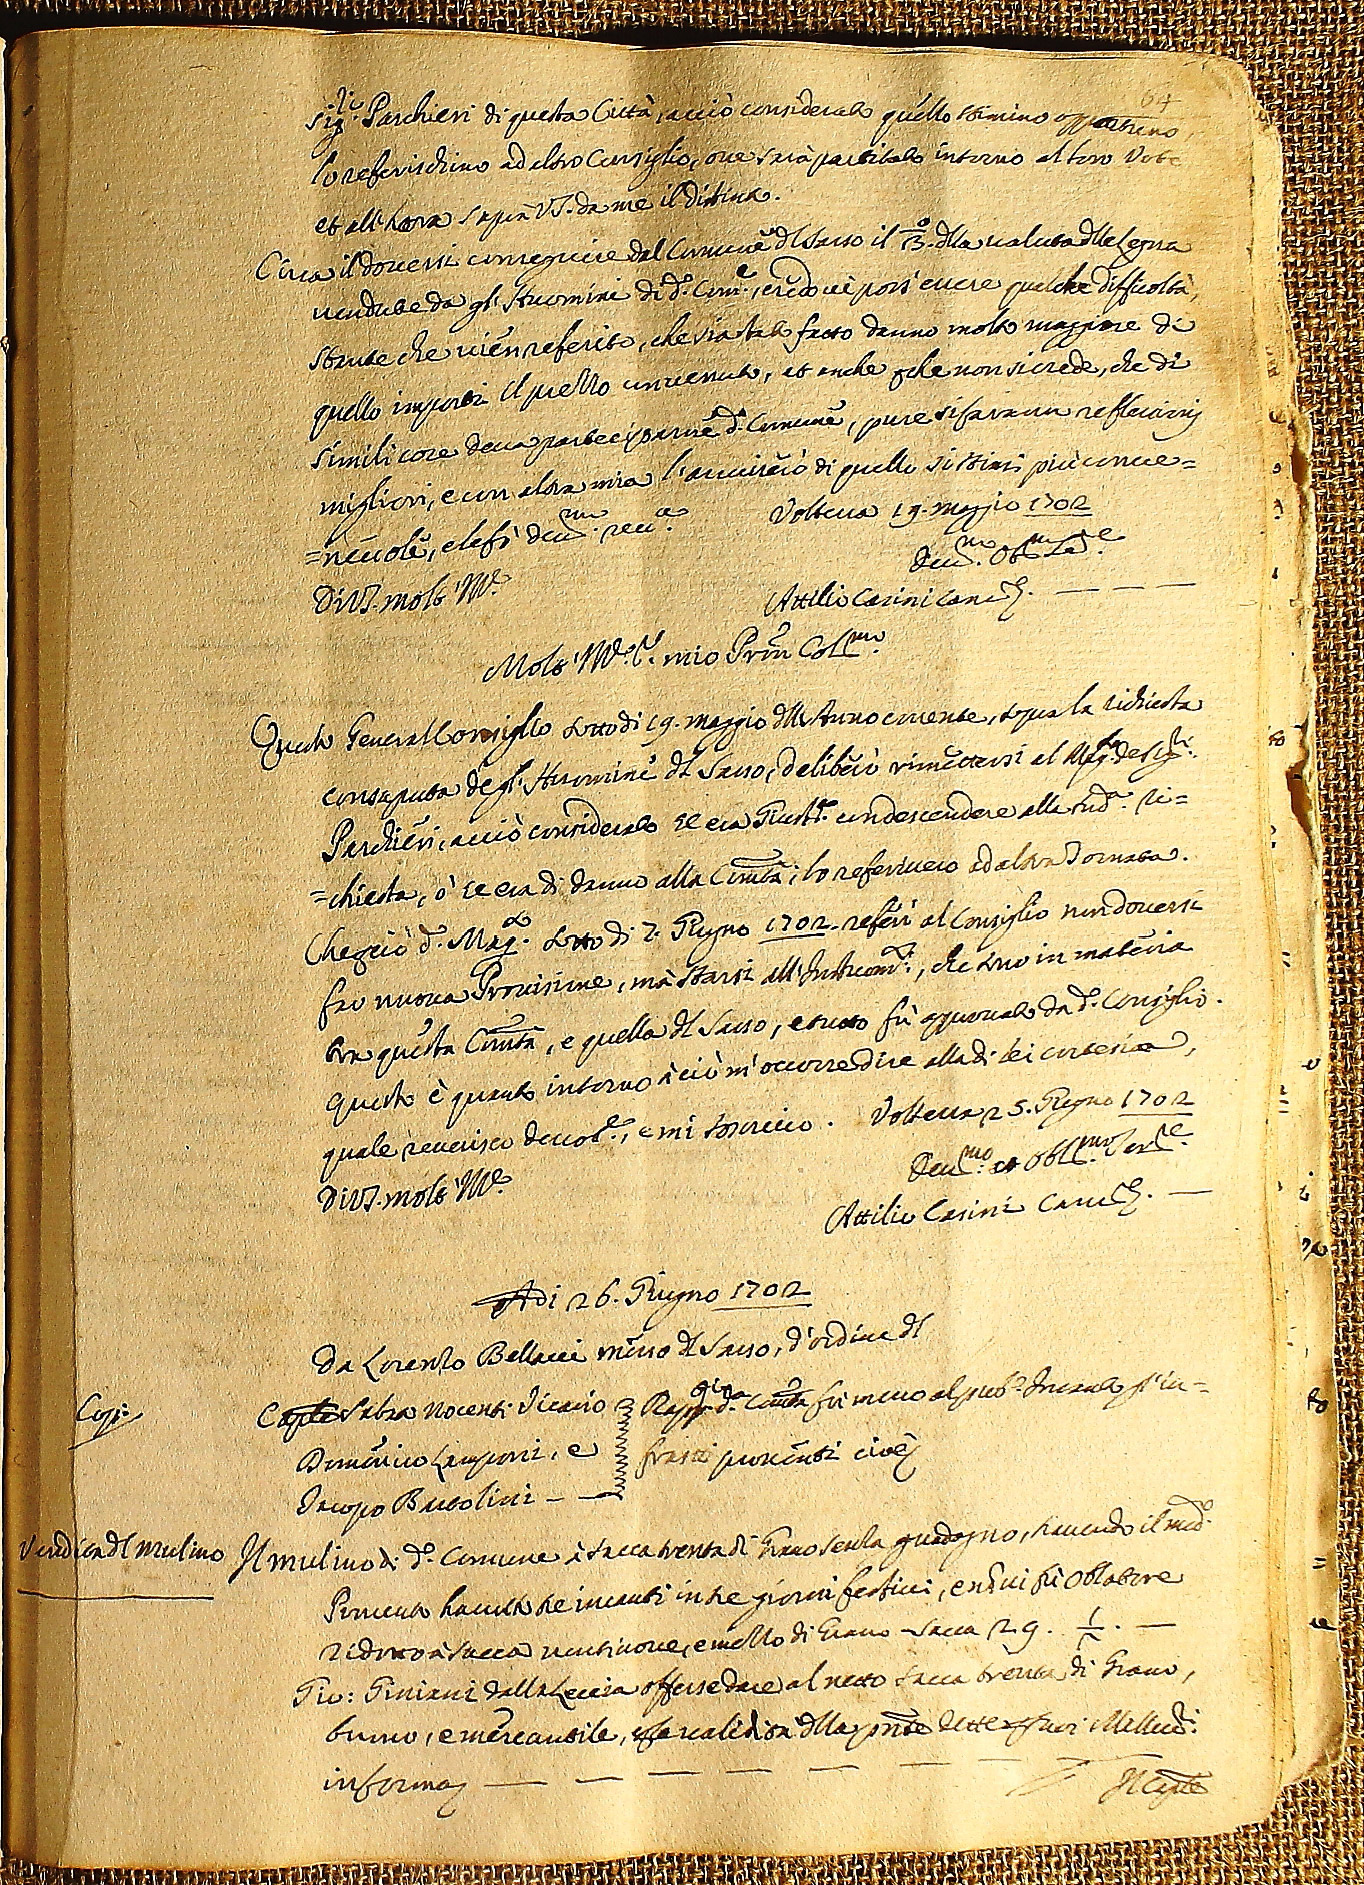 64
Sig.ri Parchieri di questa Città, acciò considerato quello stimino opportuno,
lo referischino ad altro Consiglio, ove sarà partitato intorno al loro Voto
et all'hora saprà VS. da me il distinto.
Circa il doversi conseguire dal Comune dl Sasso il 1/3. dlla valuta dlle Legna
vendute da gl'Huomini di d.o Com.e, credo vi possi essere qualche difficoltà,
stante che vien referito, che sia stato fatto danno molto maggiore di
quello importi il prezzo convenuto, et anche che non si crede, che di
simili cose deva participarne d.o Comune, pure si faranno reflessioni
migliori, e con altra mia l'avviserò di quello si stimi più conve=
=nevole, e le fò dev.ma rev.za Volterra 19. maggio 1702
Di VS. molt'Ill.e Dev.mo Obl.mo Se.re
Attilio Casini Canc.re
Molt'Ill.e S.re mio Pron Col.mo
Questo General Consiglio sotto di 19. maggio dll'Anno corrente, sopra la richiesta
consaputa de gl'Huomini dl Sasso, deliberò rimettersi al Mag.to de Sig.ri
Parchieri, acciò considerato se era Giusto condescendere alla sud.a ri=
=chiesta, ò se era di danno alla Comtà, lo referissero ad altra Tornata.
Che però d.o Mag.to sotto di 7. Giugno 1702. referì al Consiglio non doversi
far nuova Provisione, mà starsi all'Instrom.ti, che sono in materia
tra questa Comtà, e quella dl Sasso, e tutto fù approvato da d.o Consiglio.
Questo è quanto intorno à ciò m'occorre dire alla di lei cortesia,
quale reverisco devot.e, e mi soscrivo. Volterra 25. Giugno 1702
Di VS. molt'Ill.e Dev.mo et Obl.mo Ser.re
Attilio Casini Canc.re
Adi 26. Giugno 1702
Da Lorenzo Bellucci messo dl Sasso, d'ordine dl
Copi: Capto Sabza Nocenti Vicario Rapp.ti d.a Comtà fù messo al pub.o Incanto gl'in=
Domenico Lamponi, e frasti proventi cioè
Jacopo Bartolini
Vendita dl mulino Il mulino di d.o Comune à sacca trenta di Grano senza guadagno, havendo il med.o
Provento havuto tre incanti in tre giorni festivi, e non vi fù Oblatore
ridotto à sacca ventinove, e mezzo di Grano - Sacca 29. 1/2. -
Gio: Giniani dalla Leccia offerse dare al netto sacca trenta di Grano,
buono, e mercantile, e la validità dlla pnte
in forma
Il Capto